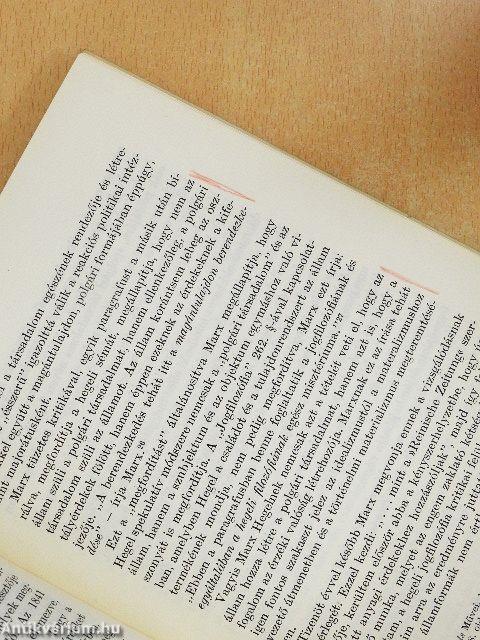 a társadalom egészének rendezője és létre-
„ésszerű" igazolttá válik a reakciós politikai intéz-
kel együtt a magántulajdon, polgári formájában éppúgy,
mint majorátusként.
Marx tüzetes kritikával, egyik paragrafust a másik után bí-
rálva, megfordítja a hegeli sémát, megállapítja, hogy nem az
állam szüli a polgári társadalmat, hanem ellenkezőleg, a polgári
társadalom szüli az államot. Az állam korántsem lebeg az osz-
tályérdekek fölött, hanem éppen ezeknek az érdekeknek a kife-
jezője. „A berendezkedés tehát itt a magántulajdon berendezke-
dése" — írja Marx.
Ezt a „megfordítást" általánosítva Marx megállapítja, hogy
Hegel spekulatív módszere nemcsak a „polgári társadalom" és az
állam, hanem a szubjektum és az objektum egymáshoz való vi-
szonyát is megfordítja. A „Jogfilozófia" 262. §-ával kapcsolat-
ban, amelyben Hegel a családot és a tulajdonrendszert az állam
termékének mondja, nem pedig megfordítva, Marx ezt írja:
„Ebben a paragrafusban benne foglaltatik a jogfilozófiának és
egyáltalában a hegeli filozófiának egész misztériuma."
Vagyis Marx Hegelnek nemcsak azt a tételét veti el, hogy az
állam hozza létre a polgári társadalmat, hanem azt is, hogy a
fogalom az érzéki valóság létrehozója. Marxnak ez az írása tehát
igen fontos szakasz jelez az idealizmustól a materializmushoz
vezető átmenetben és a történelmi materializmus megteremtésé-
Tizenöt évvel később Marx megvonja ennek a vizsgálódásnak
Ezzel kezdi: „ ... mint a »Rheinische Zeitung« szer-
kerültem először abba a kényszerhelyzetbe, hogy
anyagi érdekekhez hozzászóljak" majd így
munka, melyet az engem zaklató kétségek
a hegeli jogfilozófia kritikai felül
arra az eredményre juttatott
államformák nem érthetők
Antikvárium.hu